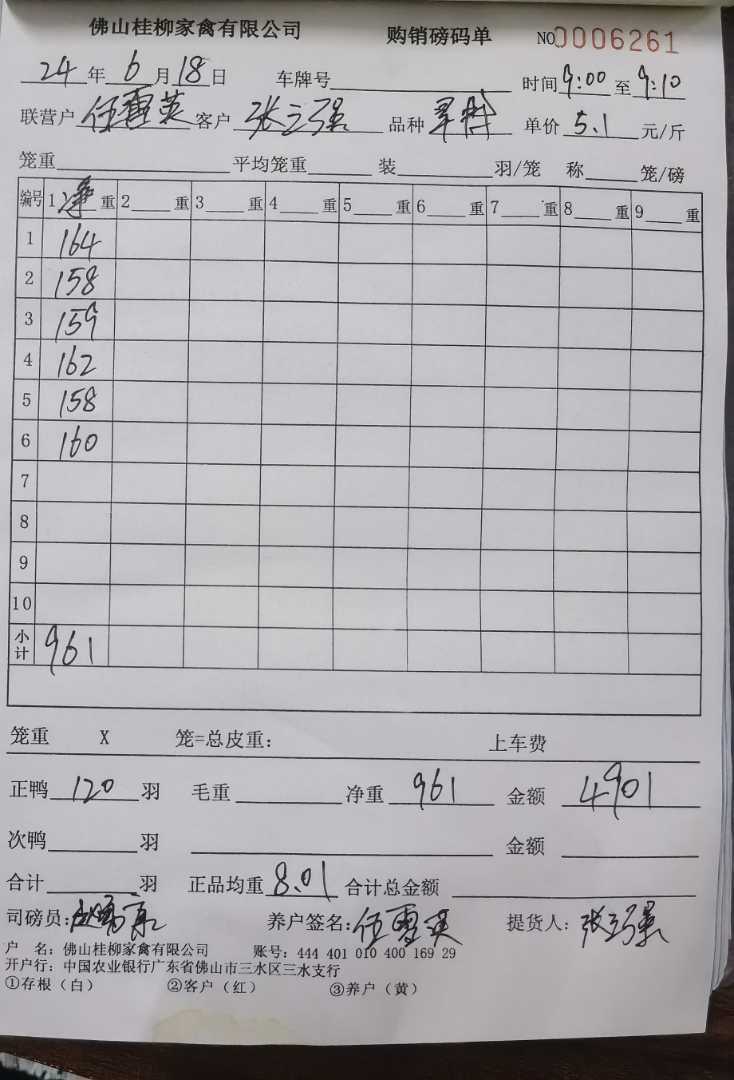 佛山桂柳家禽有限公司 购销磅码单 NO.0006261
24年6月18日 车牌号 时间9:00至9:10
联营户任惠英 客户张立强 品种 单价5.1元/斤
笼重 平均笼重 装 羽/笼 称 笼/磅
编号 1净重 2重 3重 4重 5重 6重 7重 8重 9重
1 164
2 158
3 159
4 162
5 158
6 160
7
8
9
10
小计 961
笼重 X 笼=总皮重: 上车费
正鸭120羽 毛重 净重961 金额4901
次鸭 羽 金额
合计 羽 正品均重8.01 合计总金额
司磅员: 养户签名:任惠英 提货人:张立强
户 名:佛山桂柳家禽有限公司 账号:444 401 010 400 169 29
开户行:中国农业银行广东省佛山市三水区三水支行
①存根(白) ②客户(红) ③养户(黄)